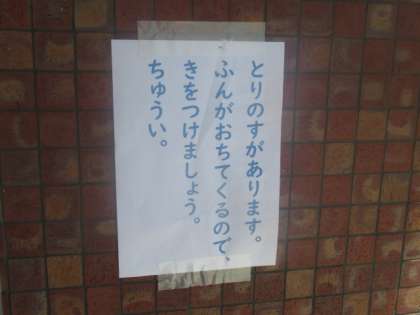 とりのすがあります。
ふんがおちてくるので、
きをつけましょう。
ちゅうい。